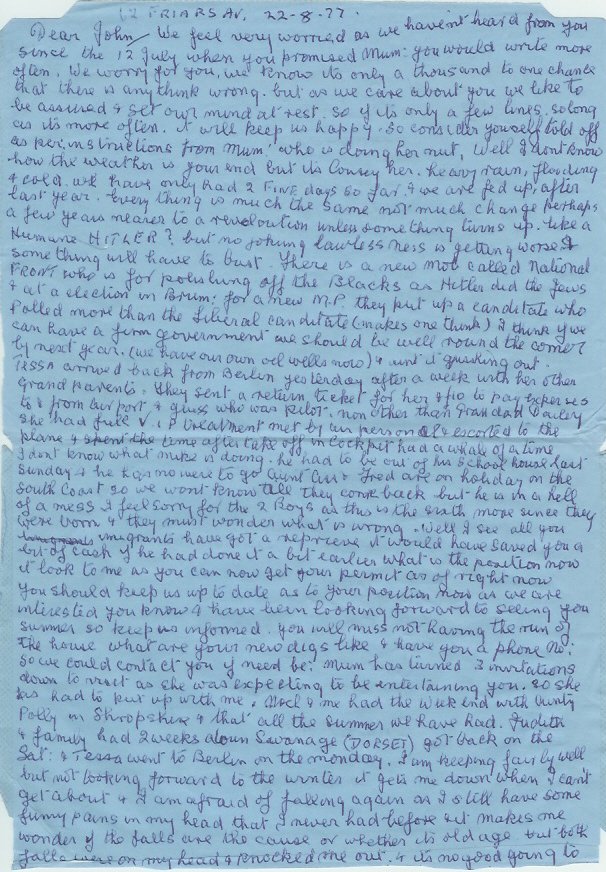 12 FRIARS AV. 22-8-77.
Dear John, We feel very worried as we havent heard from you
since the 12 July when you promised Mum: you would write more
often, We worry for you, we know its only a thousand to one chance
that there is anything wrong. but as we care about you we like to
be assured & set our mind at rest. so if its only a few lines, so long
as its more often. it will keep us happy. So consider youself told off
as per, instructions from Mum, who is doing her nut. Well I dont know
how the weather is your end but its lousey her. heavy rain, flooding
& cold. we have only had 2 FINE days so far & we are fed up, after
last year. Every thing is much the same not much change perhaps
a few years nearer to a revoloution unless something turns up. like a
Humane HITLER? but no joking lawlessness is getting worse &
something will have to bust. There is a new mob called National
FRONT who is for polishing off the Blacks as Hitler did the Jews
& at a election in Brum: for a new M.P. they put up a canditate who
Polled more than the Liberal canditate (makes one think) I think if we
can have a firm government we should be well round the corner
by next year. (we have our own oil wells now) & aint it gushing out.
TESSA arrived back from Berlin yesterday after a week with her other
Grand parents. they sent a return ticket for her & £10 to pay expenses
to & from air port & guess who was pilot. non other than Grandad
she had full V.I.P treatment met by air personel & escorted to the
plane & spent the time after take off in Cockpit had a whale of a time
I dont know what mike is doing. he had to be out of his School house last
Sunday & he has no were to go Aunt & Fred are on holiday on the
South Coast so we wont know till they come back but he is in a hell
of a mess I feel sorry for the 2 Boys as this is the sixth move since they
were born & they must wonder what is wrong. Well I see all you
imigrants have got a reprieve it would have saved you a
bit of cash if he had done it a bit earlier what is the position now
it look to me as you can now get your permit as of right now
you should keep us up to date as to your position now as we are
interested you know & have been looking forward to seeing you
summer so keep us informed. you will miss not having the run of
the house what are your new digs like & have you a phone No:
so we could contact you if need be: Mum has turned 3 invitations
down to visit as she was expecting to be entertaining you. so she
has had to put up with me. & me had the week end with Aunty
Polly in Shropshire & that all the summer we have had. Judith
& family had 2 weeks down Swanage (DORSET) got back on the
Sat: & Tessa went to Berlin on the monday. I am keeping fairly well
but not looking forward to the winter it gets me down when I can't
get about & I am afraid of falling again as I still have some
funny pains in my head that I never had before & it makes me
wonder if the falls are the cause or whether its old age. but both
falls were on my head & knocked me out. & its no good going to